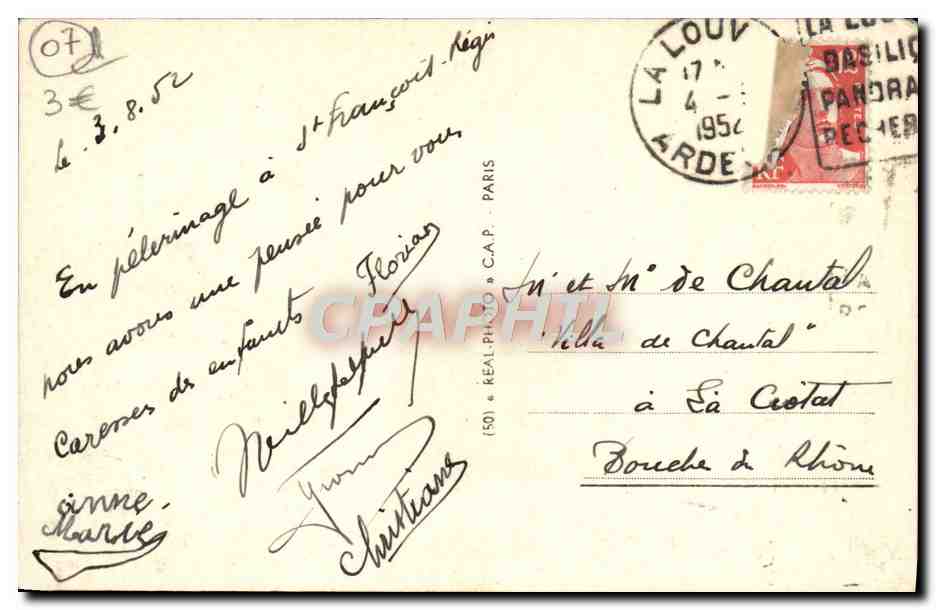 07
3 €
Le 3.8.52
En pélerinage à St François-Régis
nous avons une pensée pour vous
Caresses des enfants
Florian
Yvonne
Christiane
anne-
Marie
(50) « RÉAL-PHOTO » C.A.P. - PARIS
CPAPHIL
LA LOUV
17
4 -
1952
ARDE
LA LOU
BASILI
PANORA
PECHE
RF
Mr et Me de Chantal
"Villa de Chantal"
à La Ciotat
Bouches du Rhône